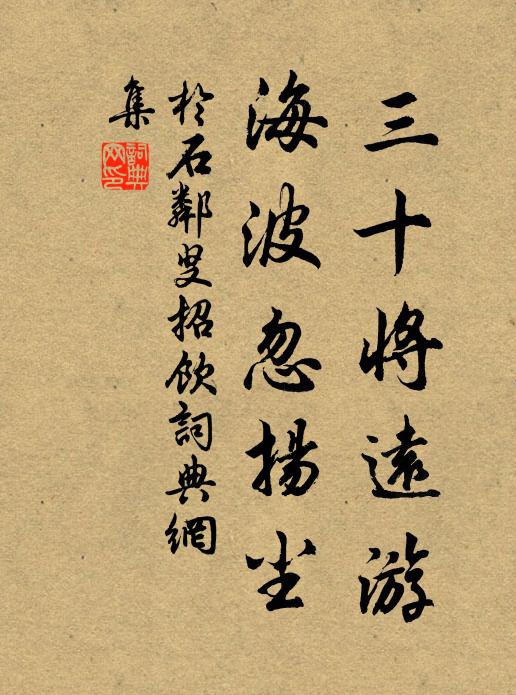 三十将遠游
海波忽揚尘
於石鄰叟招飲詞典網
集
詞典網印